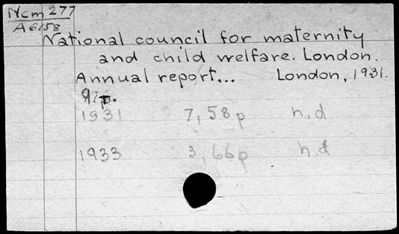 Ncm 277
A6158
National council for maternity
and child welfare. London.
Annual report... London, 1931.
p.
1931 7, 58p n.d
1933 3, 66p n.d